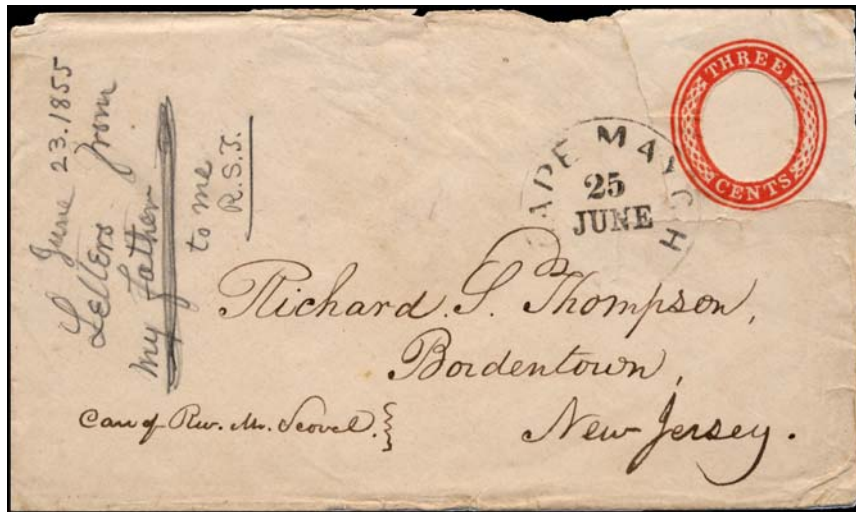 June 23. 1855
Letters from
my father
to me
R.S.T.
THREE
CENTS
CAPE MAY C.H
25
JUNE
Richard. S. Thompson,
Bordentown,
New Jersey.
Care of Rev. Mr. Scovel.